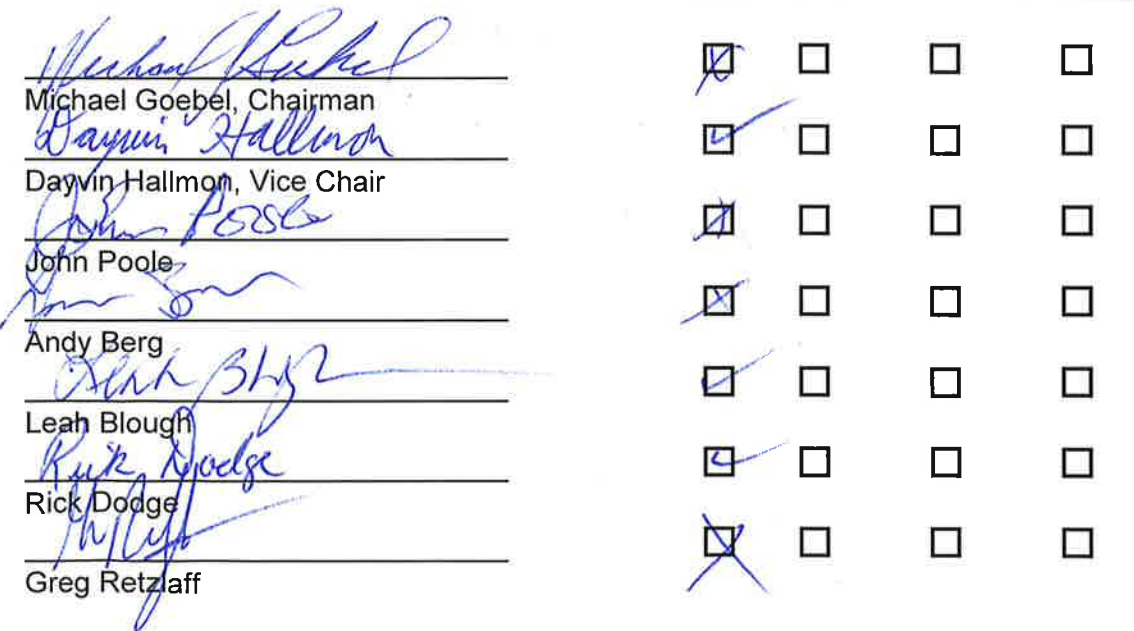 Michael Goebel
Michael Goebel, Chairman
Dayvin Hallmon
Dayvin Hallmon, Vice Chair
John Poole
John Poole
Andy Berg
Leah Blough
Rick Dodge
Rick Dodge
Greg Retzlaff